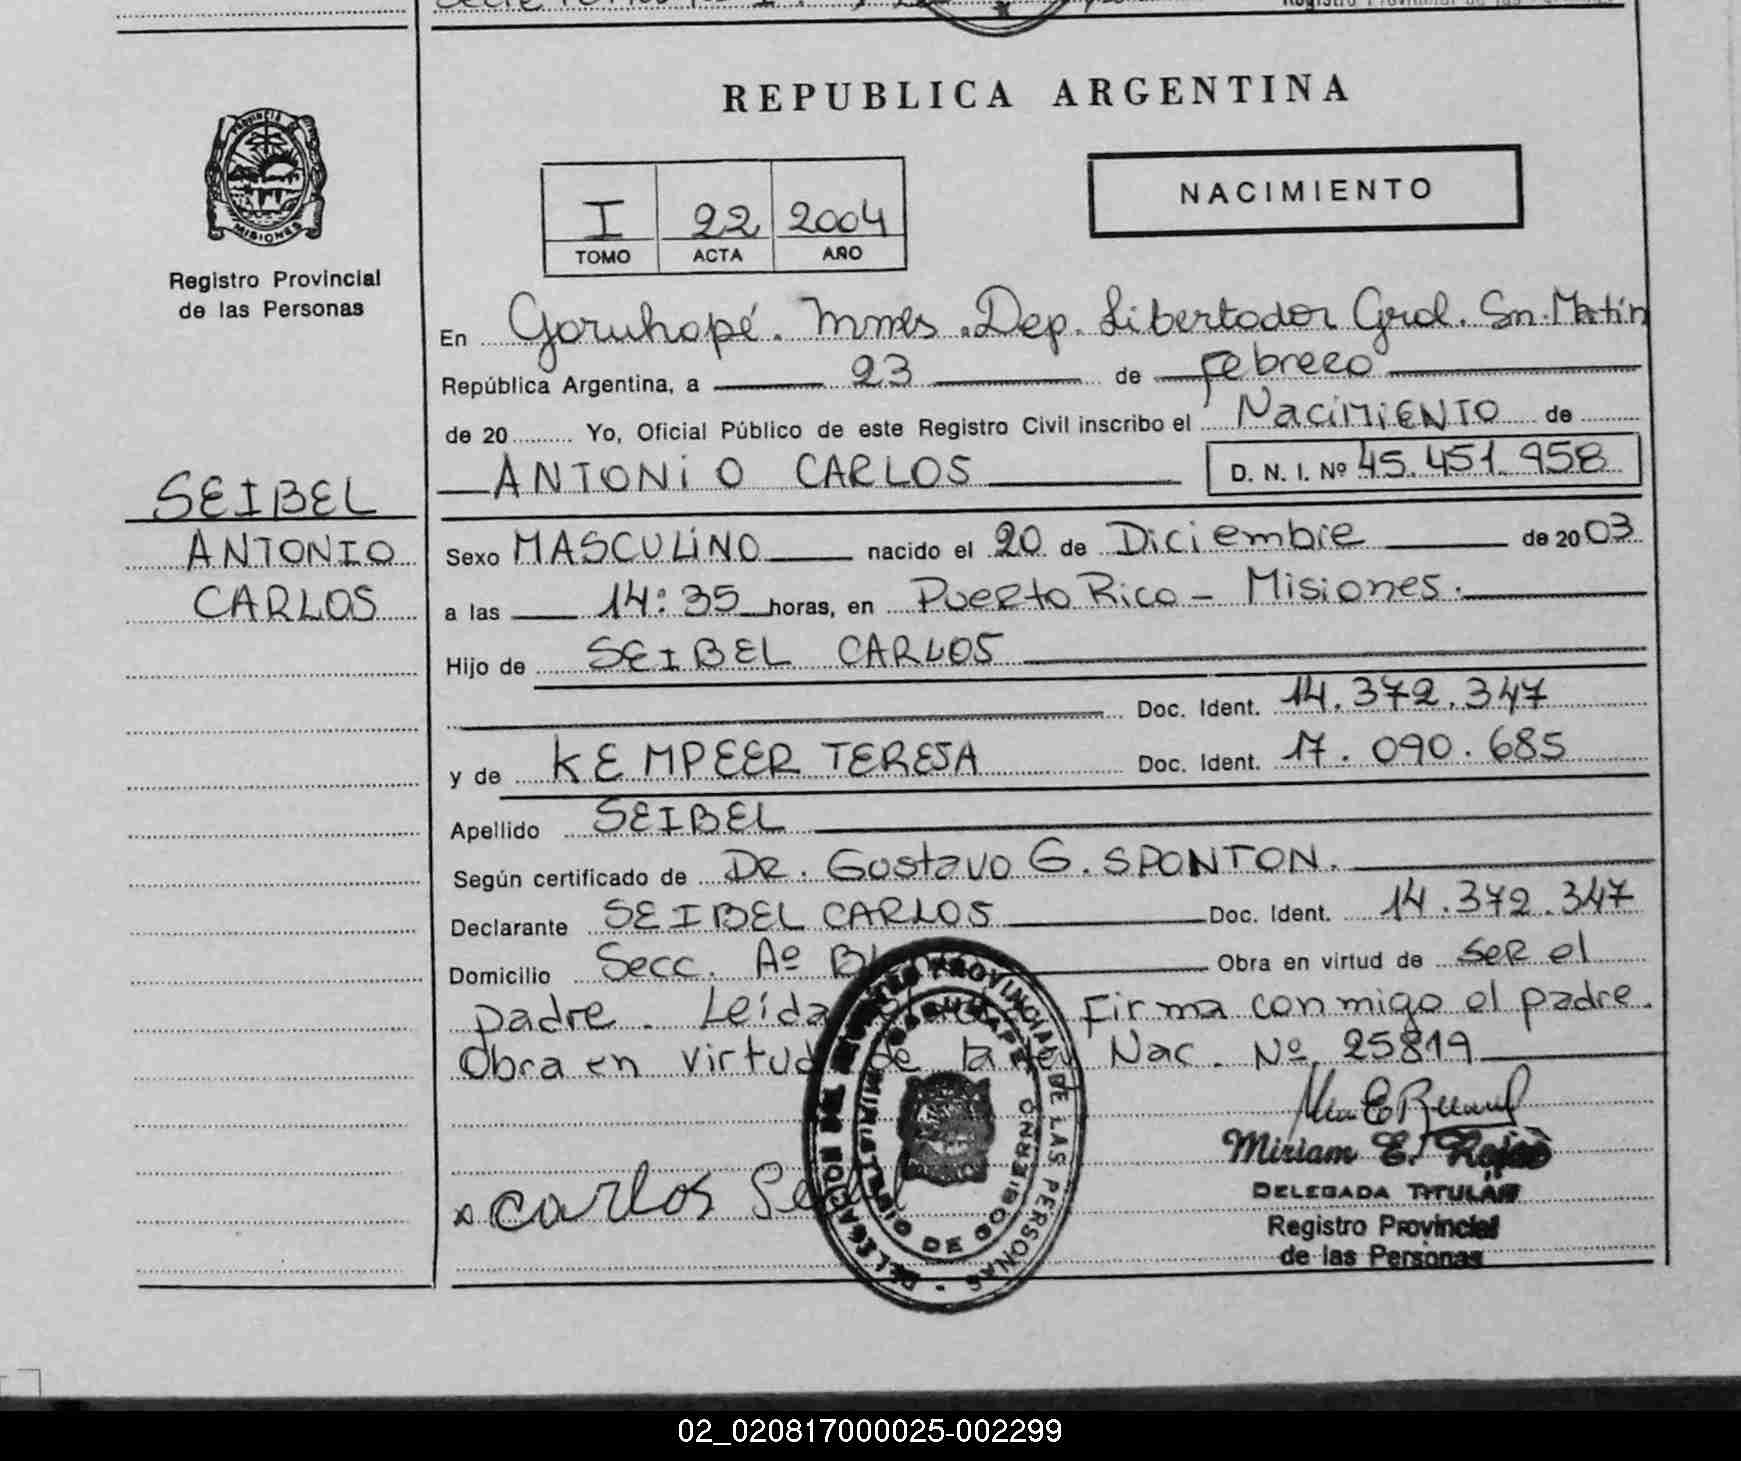 REPUBLICA ARGENTINA
PROVINCIA DE
MISIONES
Registro Provincial
de las Personas
NACIMIENTO
I 22 2004
TOMO ACTA AÑO
En Garuhapé. Mnes. Dep. Libertador Gral. Sn. Martín
República Argentina, a 23 de febrero
de 20 Yo, Oficial Público de este Registro Civil inscribo el Nacimiento de
ANTONIO CARLOS D. N. I. Nº 45.451.958
SEIBEL
ANTONIO
CARLOS
Sexo MASCULINO nacido el 20 de Diciembre de 2003
a las 14:35 horas, en Puerto Rico - Misiones.
Hijo de SEIBEL CARLOS
Doc. Ident. 14.372.347
y de KEMPEER TERESA Doc. Ident. 17.090.685
Apellido SEIBEL
Según certificado de DR. Gustavo G. SPONTON.
Declarante SEIBEL CARLOS Doc. Ident. 14.372.347
Domicilio Secc. Aº Obra en virtud de ser el
padre. Leída Firma conmigo el padre.
Obra en virtud de la Nac. Nº 25819
Carlos
Miriam E.
DELEGADA TITULAR
Registro Provincial
de las Personas
PROVINCIAL DE LAS PERSONAS
MINISTERIO DE GOBIERNO
02_020817000025-002299